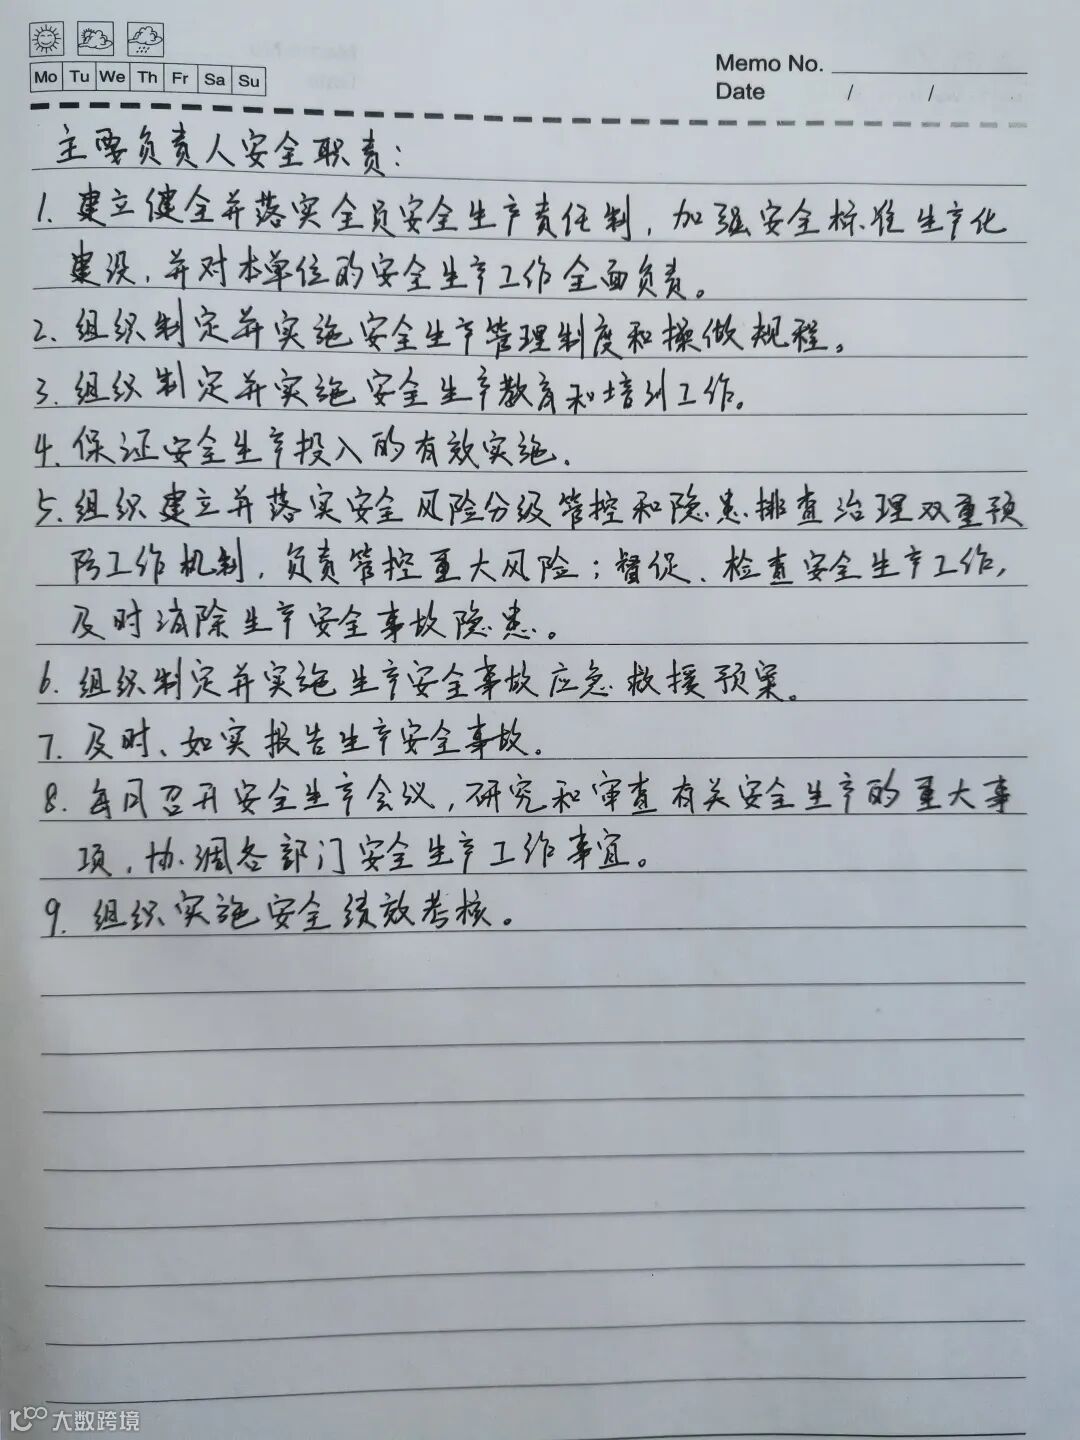 Mo Tu We Th Fr Sa Su
Memo No.
Date / /
主要负责人安全职责：
1. 建立健全并落实全员安全生产责任制，加强安全标准生产化
建设，并对本单位的安全生产工作全面负责。
2. 组织制定并实施安全生产管理制度和操做规程。
3. 组织制定并实施安全生产教育和培训工作。
4. 保证安全生产投入的有效实施.
5. 组织建立并落实安全风险分级管控和隐患排查治理双重预
防工作机制，负责管控重大风险；督促、检查安全生产工作，
及时消除生产安全事故隐患。
6. 组织制定并实施生产安全事故应急救援预案。
7. 及时、如实报告生产安全事故.
8. 每月召开安全生产会议，研究和审查有关安全生产的重大事
项，协调各部门安全生产工作事宜。
9. 组织实施安全绩效考核。
大数跨境